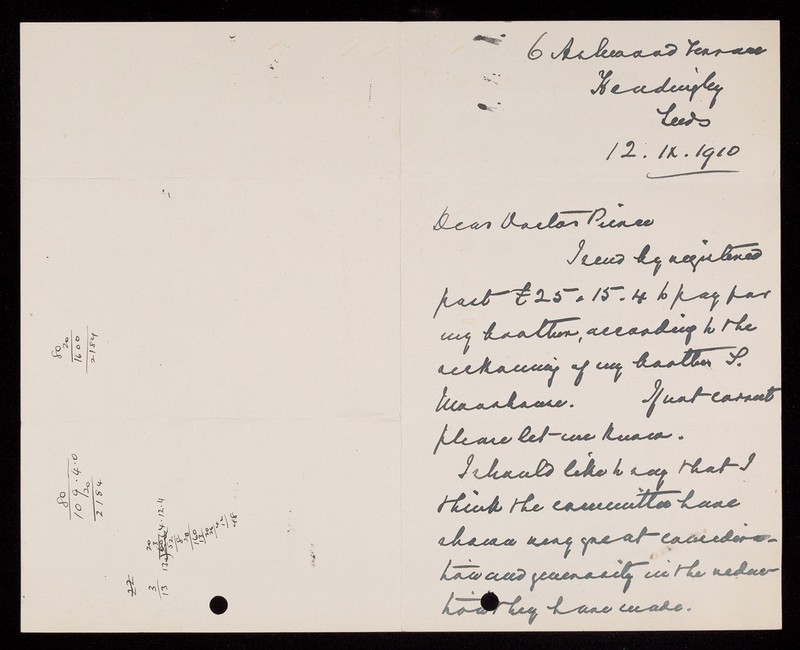 6 Ashwood Terrace
Headingley
Leeds
12. IX. 1910
Dear Doctor Pierce
I send by registered
post £25 . 15 . 4 to pay for
my brother, according to the
reckoning of my brother S.
Moorhouse. If not correct
please let me know.
I should like to say that I
think the committee have
shown very great considera-
tion and generosity in the reduc-
tion they have made.
80
20
1600
2184
80
109.4.0
20
2184